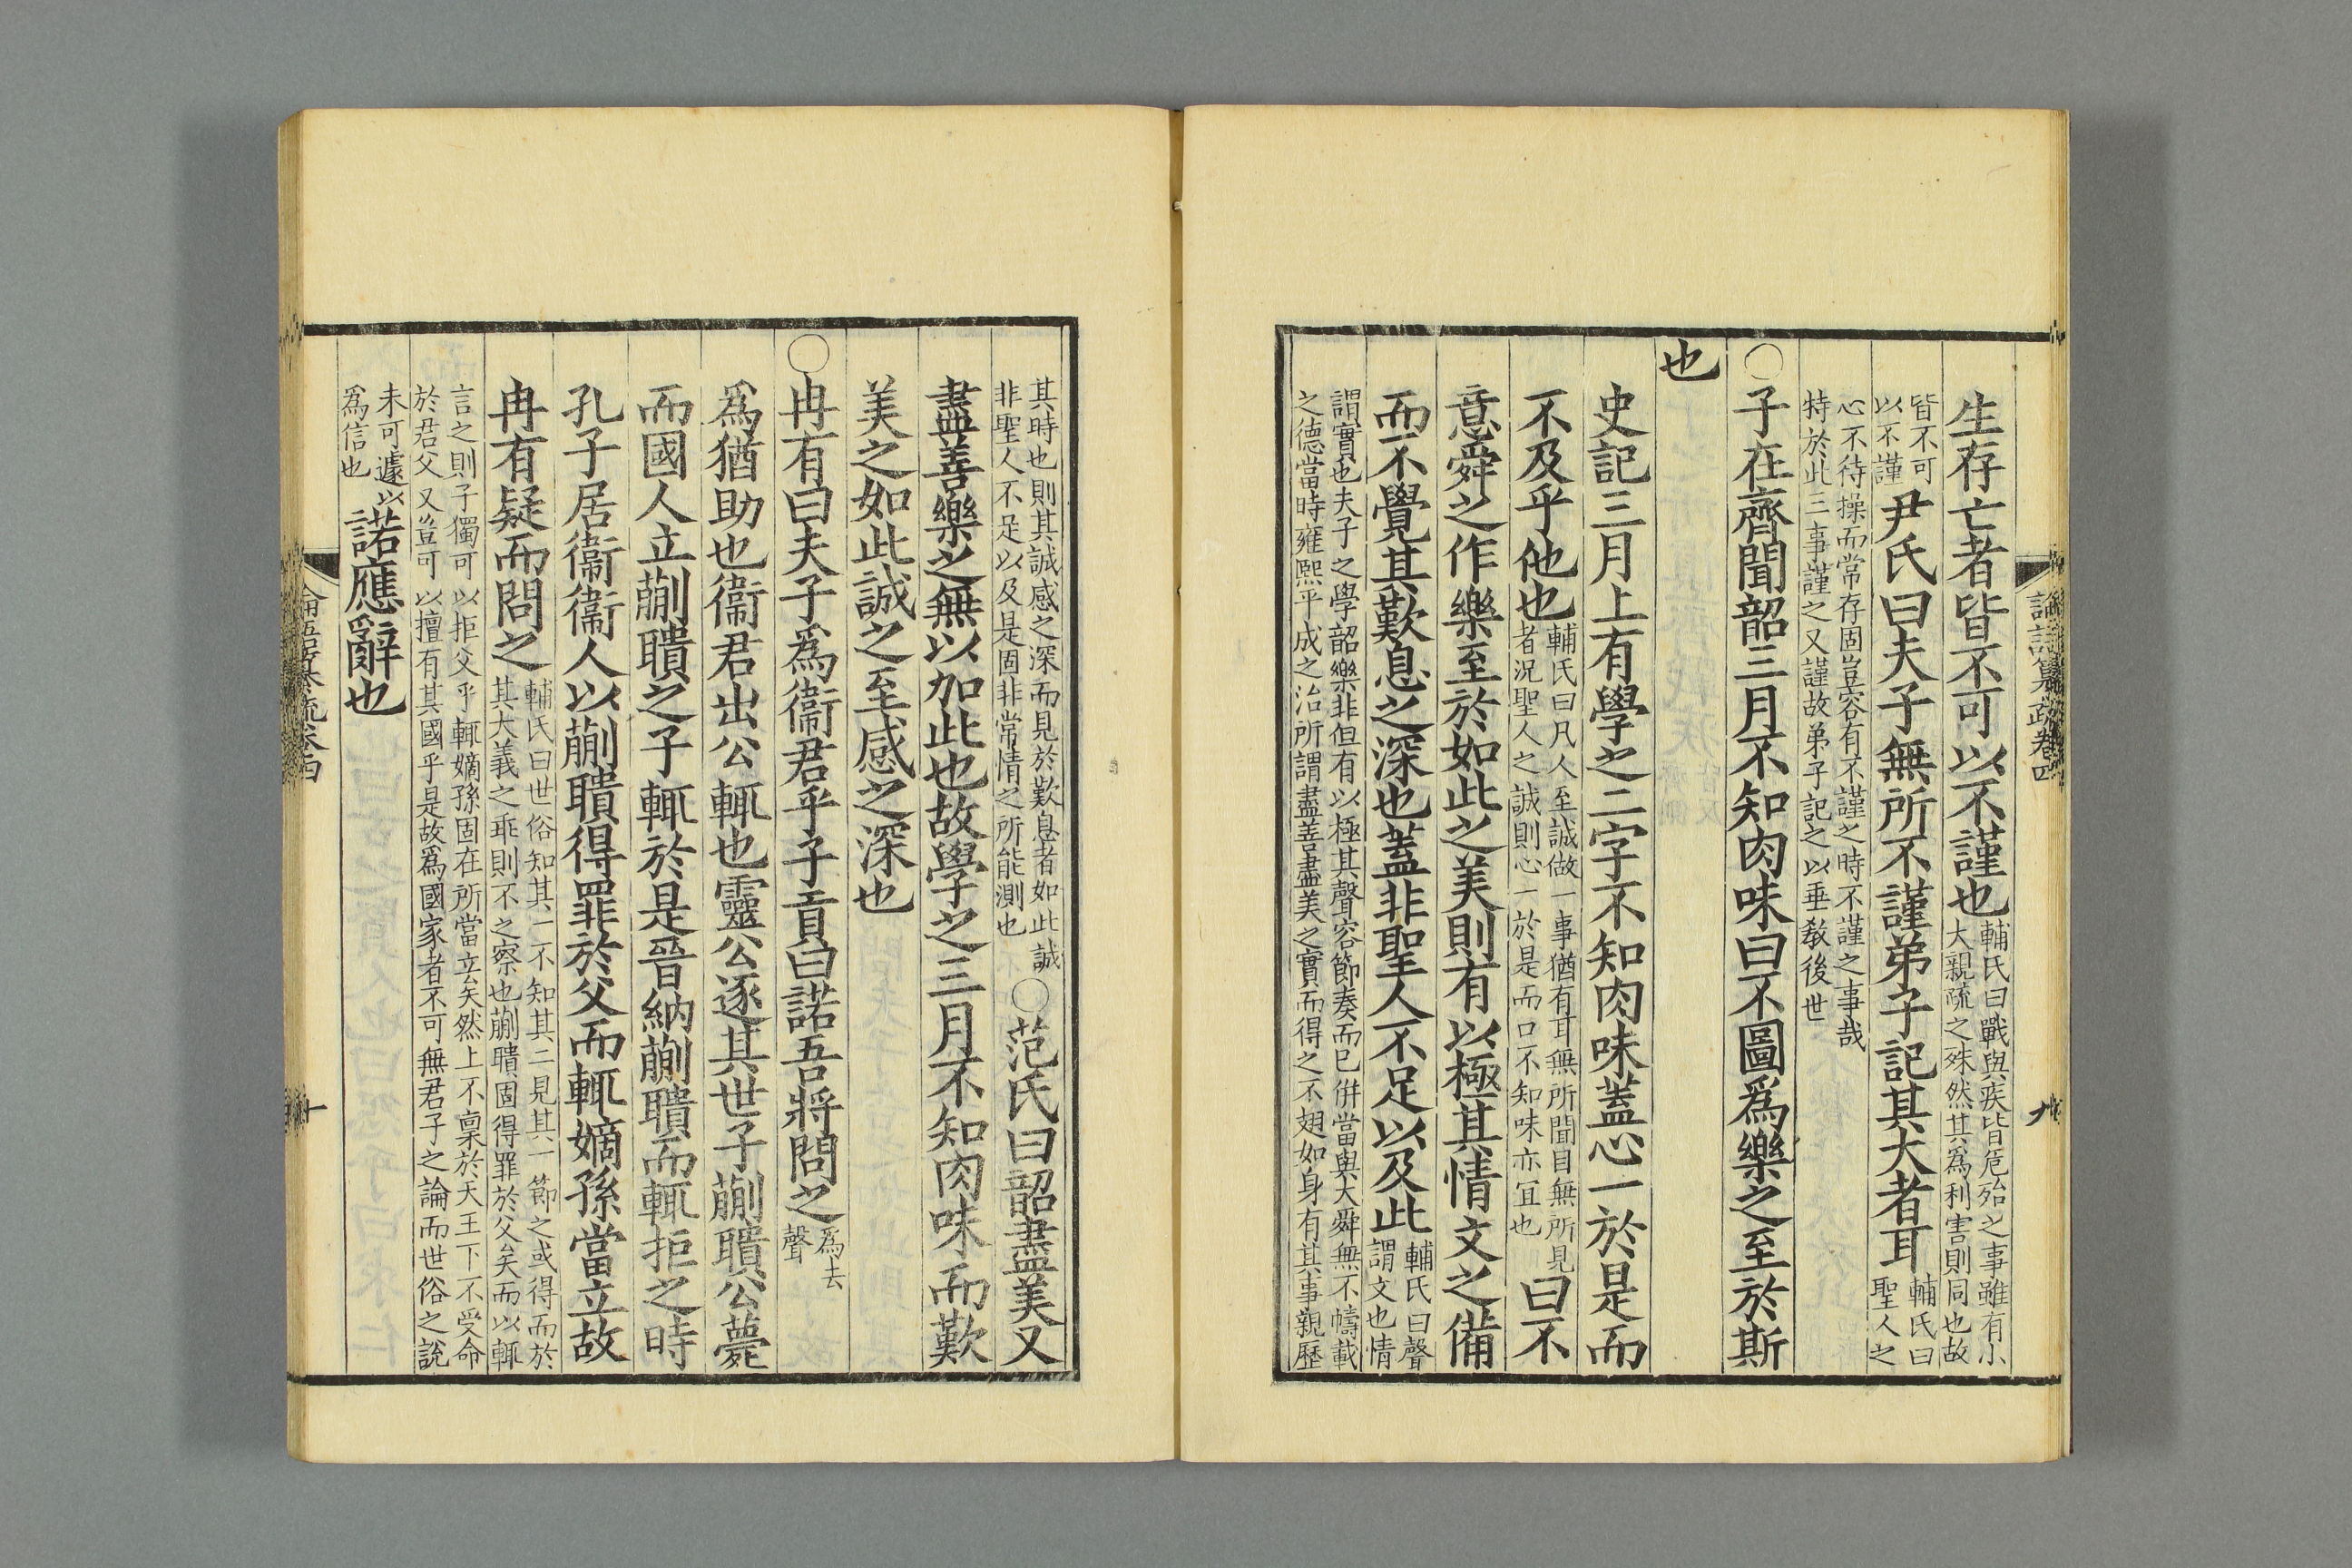 論語纂疏卷四
九
生存亡者皆不可以不謹也輔氏曰戰與疾皆危殆之事雖有小
大親疏之殊然其爲利害則同也故
皆不可
以不謹尹氏曰夫子無所不謹弟子記其大者耳輔氏曰
聖人之
心不待操而常存固豈容有不謹之時不謹之事哉
特於此三事謹之又謹故弟子記之以垂敎後世
○子在齊聞韶三月不知肉味曰不圖爲樂之至於斯
也
史記三月上有學之二字不知肉味蓋心一於是而
不及乎他也輔氏曰凡人至誠做一事猶有耳無所聞目無所見
者況聖人之誠則心一於是而口不知味亦冝也曰不
意舜之作樂至於如此之美則有以極其情文之備
而不覺其歎息之深也蓋非聖人不足以及此輔氏曰聲
謂文也情
謂實也夫子之學韶樂非但有以極其聲容節奏而已倂當與大舜無不幬載
之德當時雍熙平成之治所謂盡善盡美之實而得之不翅如身有其事親歷
其時也則其誠感之深而見於歎息者如此誠
非聖人不足以及是固非常情之所能測也○范氏曰韶盡美又
盡善樂之無以加此也故學之三月不知肉味而歎
美之如此誠之至感之深也
○冉有曰夫子爲衞君乎子貢曰諾吾將問之爲去
聲
爲猶助也衞君出公輒也靈公逐其世子蒯聵公薨
而國人立蒯聵之子輒於是晉納蒯聵而輒拒之時
孔子居衞衞人以蒯聵得罪於父而輒嫡孫當立故
冉有疑而問之輔氏曰世俗知其一不知其二見其一節之或得而於
其大義之乖則不之察也蒯聵固得罪於父矣而以輒
言之則子獨可以拒父乎輒嫡孫固在所當立矣然上不稟於天王下不受命
於君父又豈可以擅有其國乎是故爲國家者不可無君子之論而世俗之說
未可遽以
爲信也諾應辭也
論語纂疏卷四
十